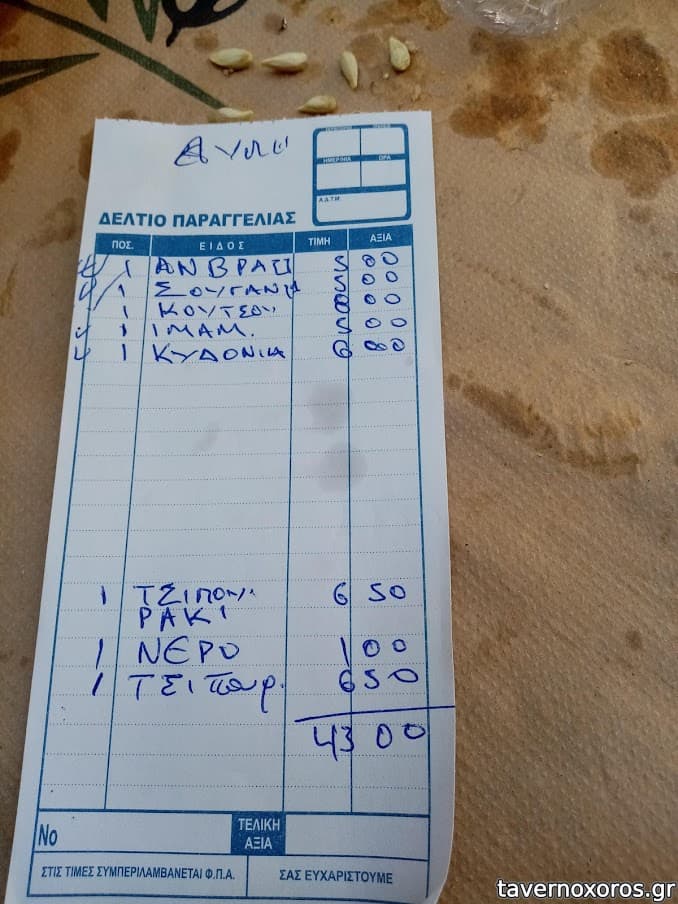 ΗΜΕΡ/ΝΙΑ ΩΡΑ
Α.Δ.Τ.Μ.
ΔΕΛΤΙΟ ΠΑΡΑΓΓΕΛΙΑΣ
ΠΟΣ. ΕΙΔΟΣ ΤΙΜΗ ΑΞΙΑ
1 ΑΝ ΒΡΑΣ 5 00
1 ΣΟΥΓΑΝΙΑ 5 00
1 ΚΟΥΤΣΟΥ 8 00
1 ΙΜΑΜ. 5 00
1 ΚΥΔΟΝΙΑ 6 00
1 ΤΣΙΠΟΥ. 6 50
ΡΑΚΙ
1 ΝΕΡΟ 1 00
1 ΤΣΙπουρ. 6 50
43 00
Νο ΤΕΛΙΚΗ ΑΞΙΑ
ΣΤΙΣ ΤΙΜΕΣ ΣΥΜΠΕΡΙΛΑΜΒΑΝΕΤΑΙ Φ.Π.Α. ΣΑΣ ΕΥΧΑΡΙΣΤΟΥΜΕ
tavernoxoros.gr